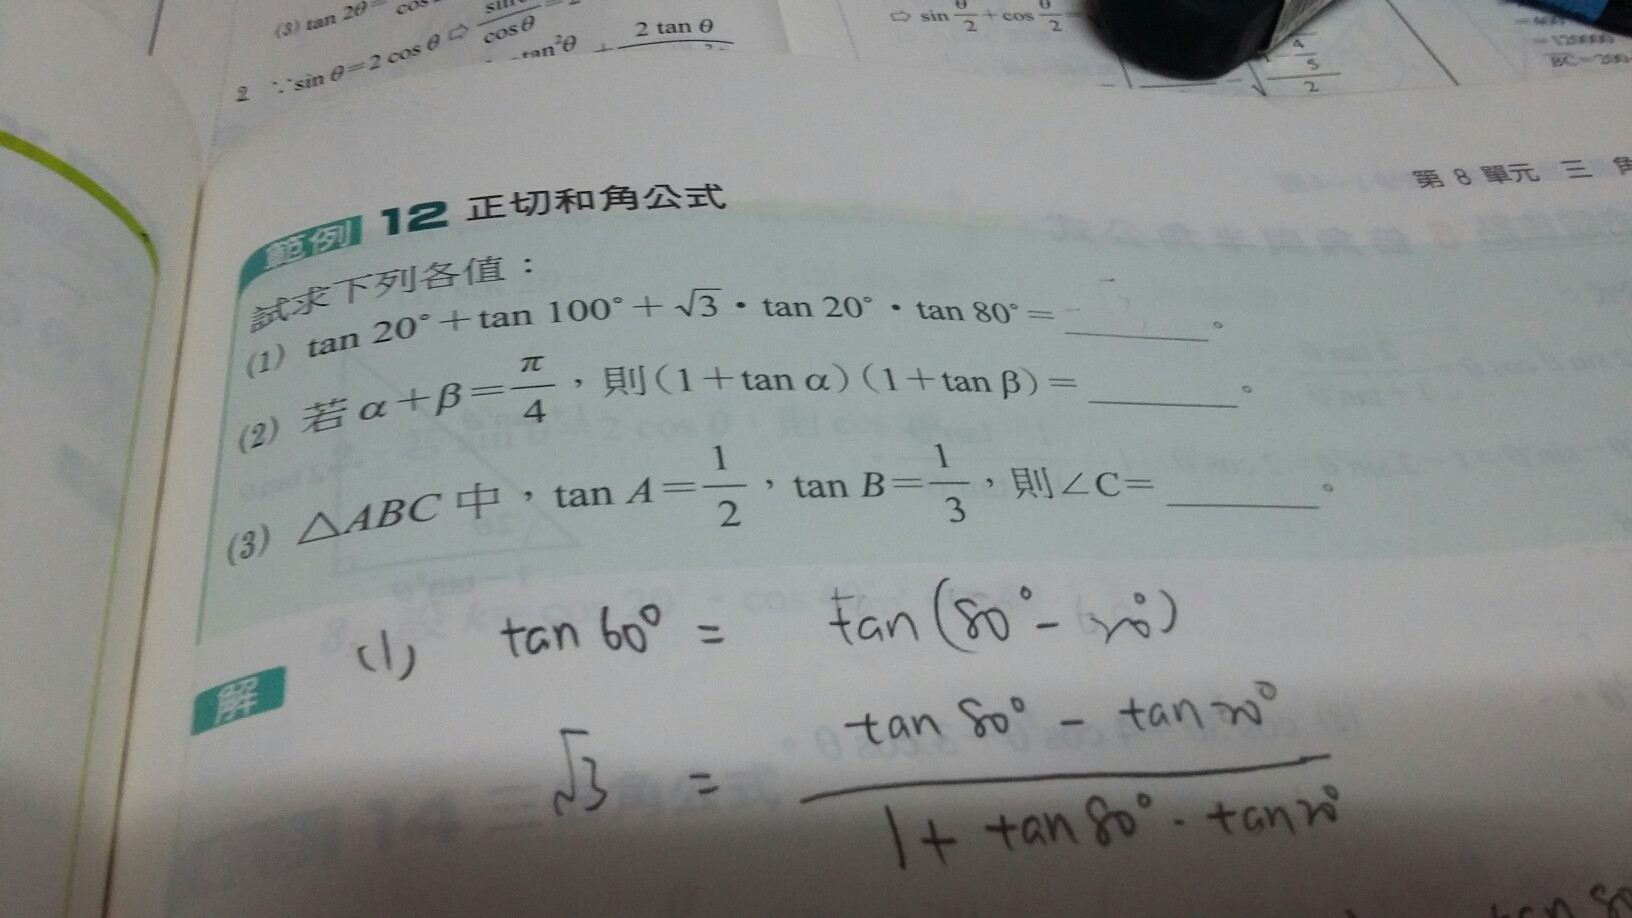 (3) tan 2θ= cos
2 ∵sin θ=2 cos θ ⇨ sin/cosθ =2
tan²θ + 2 tan θ
⇨ sin θ/2 + cos θ/2
4/5
2
BC=200
第 8 單元 三 角
範例 12 正切和角公式
試求下列各值：
(1) tan 20°＋tan 100°＋√3．tan 20°．tan 80°＝______。
(2) 若 α＋β＝π/4，則(1＋tan α)(1＋tan β)＝______。
(3) △ABC 中，tan A＝1/2，tan B＝1/3，則∠C＝______。
解
(1) tan 60° = tan (80° - 20°)
√3 = (tan 80° - tan 20°)/(1 + tan 80° · tan 20°)
tan 80